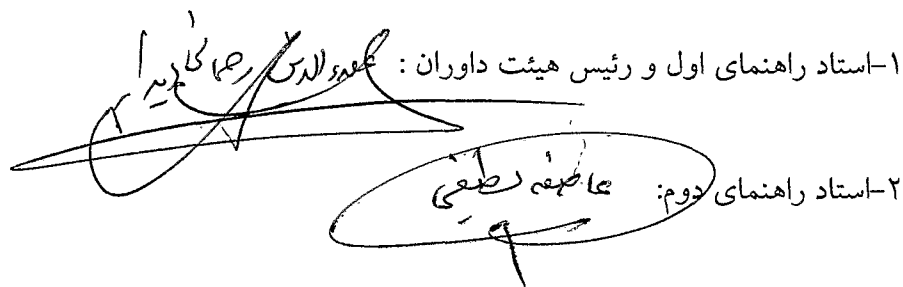 ۱-استاد راهنمای اول و رئیس هیئت داوران : رحمانی
۲-استاد راهنمای دوم: عاطفه لطفی